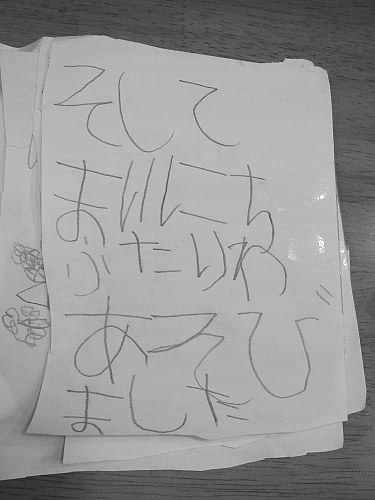 そして
まいにち
ふたりわ
あそび
ました